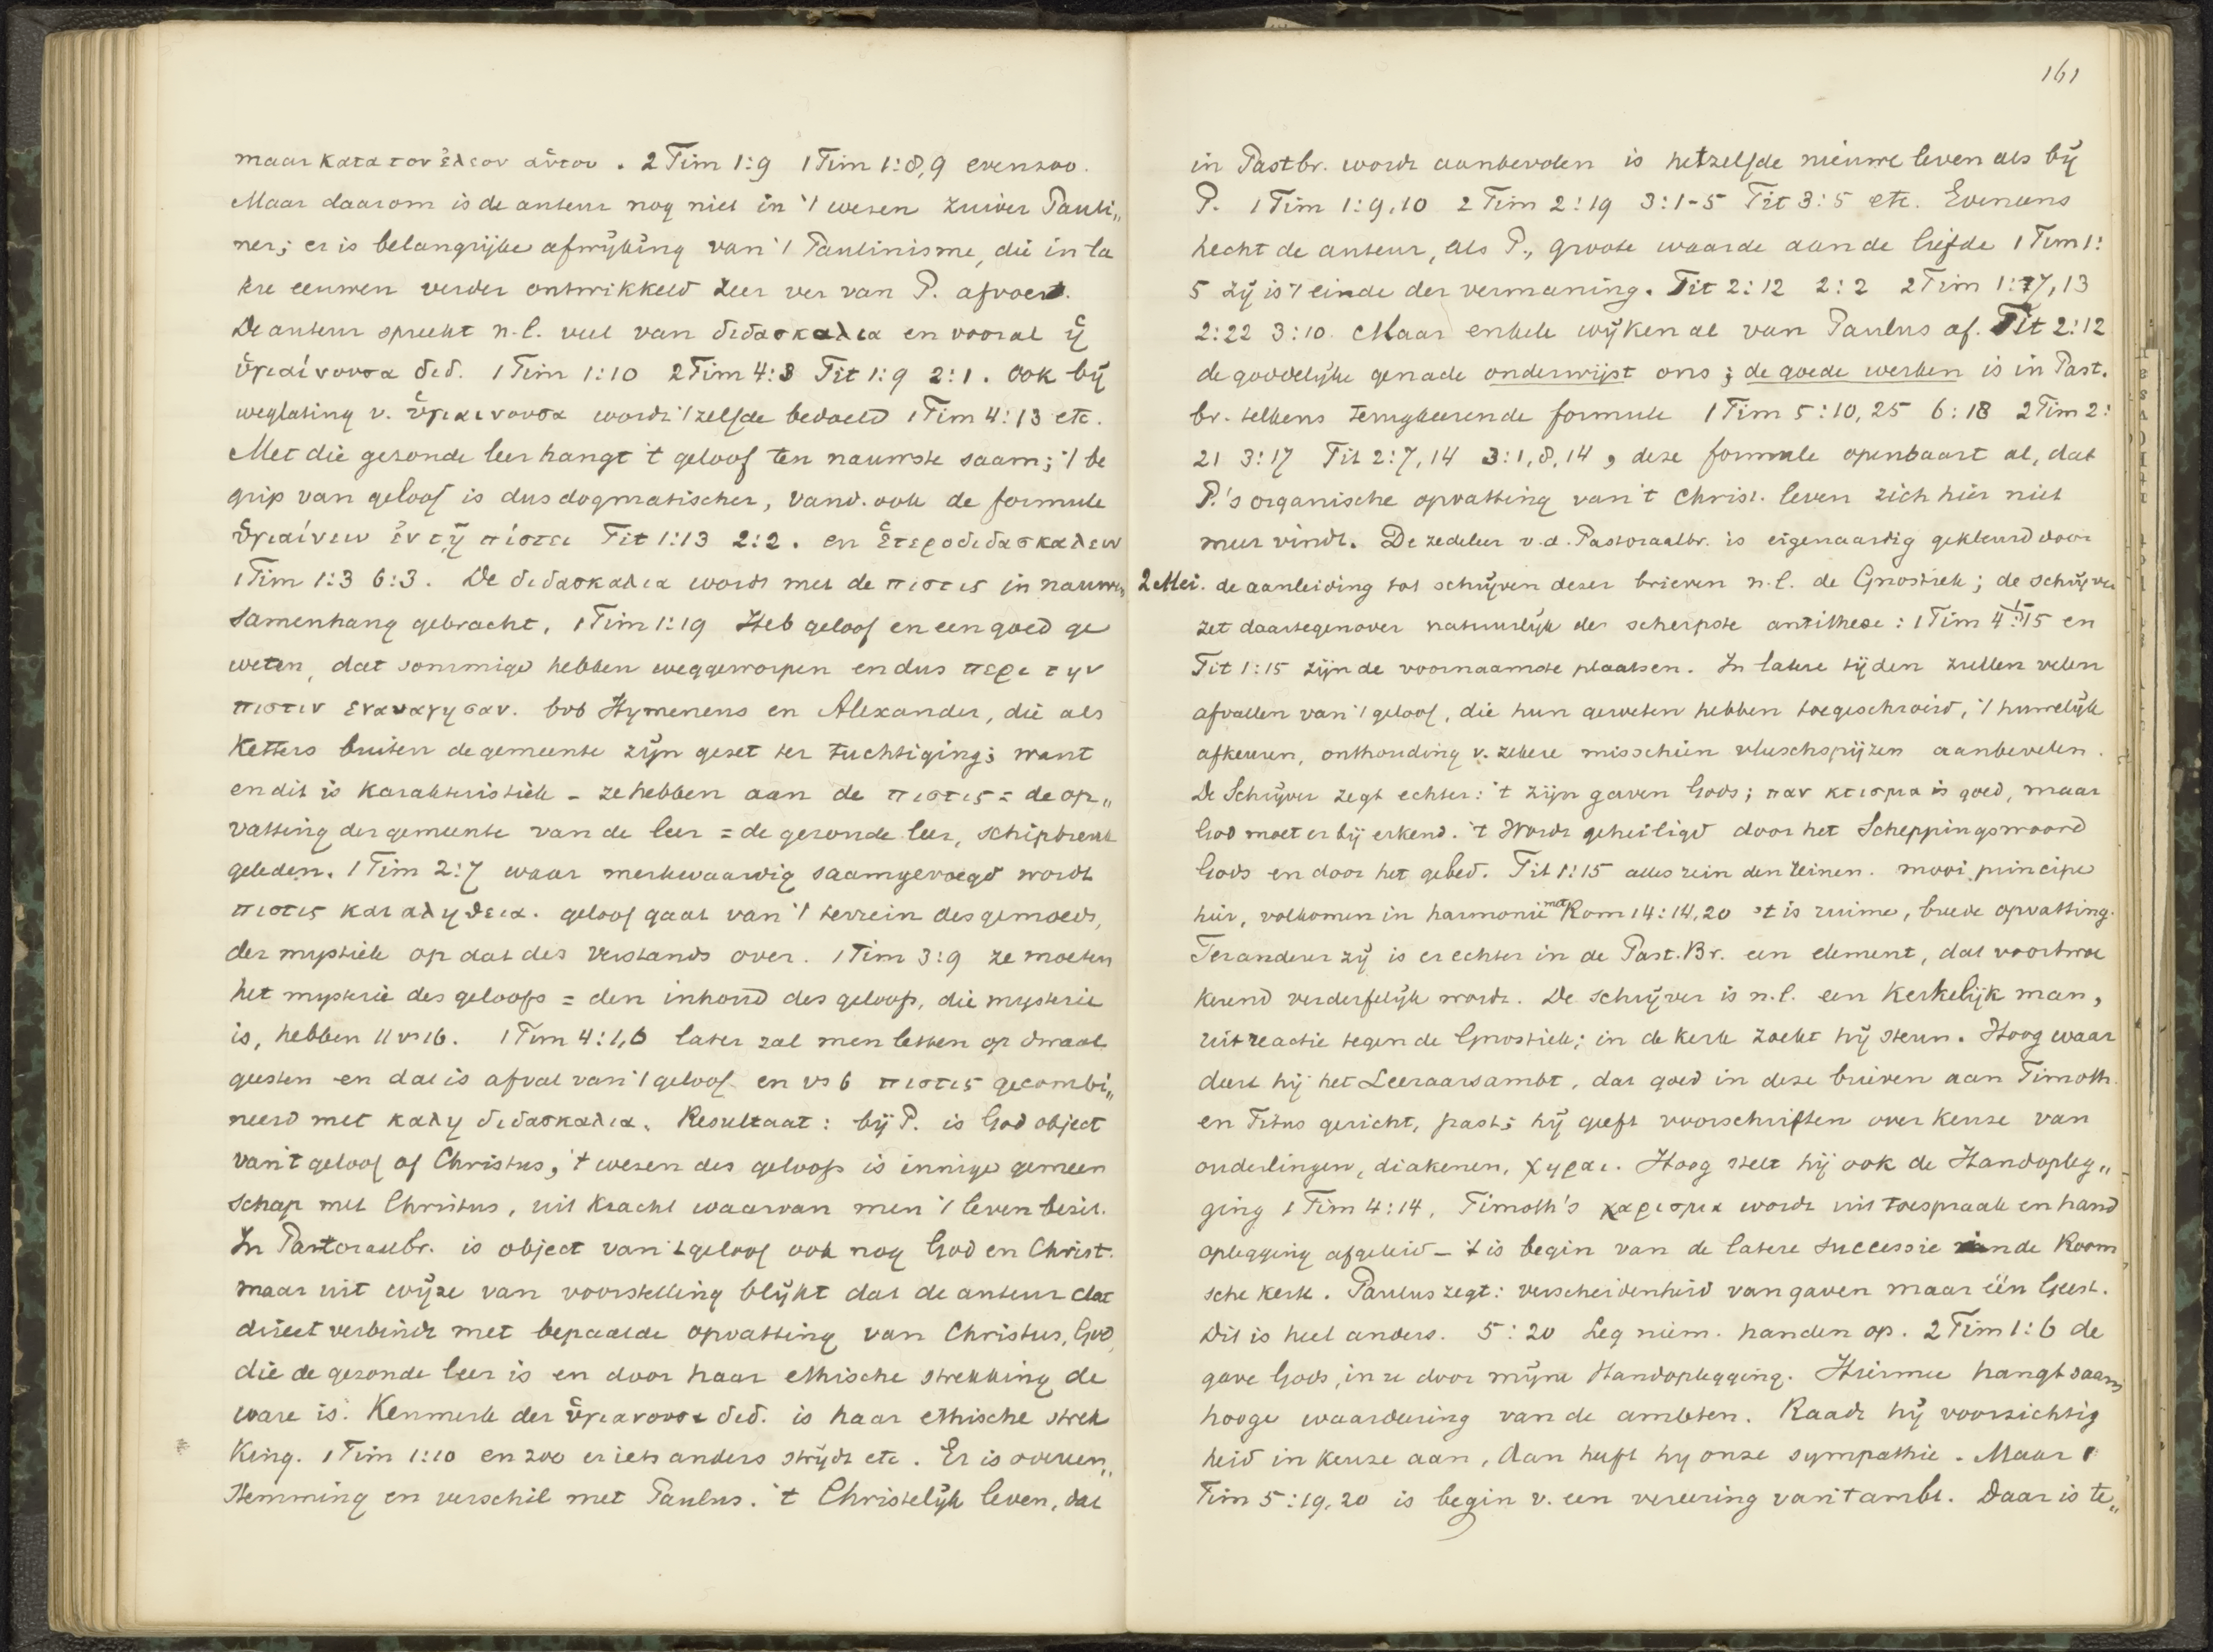 maar κατα τον ἐλεον αὐτου. 2 Tim 1:9 1 Tim 1:8,9 evenzoo.
Maar daarom is de auteur nog niet in 't wezen zuiver Pauli„
ner; er is belangrijke afwijking van 't Paulinisme, die in la
tere eeuwen verder ontwikkeld zeer ver van P. afvoert.
De auteur spreekt n.l. veel van διδασκαλια en vooral ἡ
ὑγιαίνουσα διδ. 1 Tim 1:10 2 Tim 4:3 Tit 1:9 2:1. Ook bij
weglating v. ὑγιαινουσα wordt 't zelfde bedoeld 1 Tim 4:13 etc.
Met die gezonde leer hangt 't geloof ten nauwste saam; 't be
grip van geloof is dus dogmatischer, vand. ook de formule
ὑγιαίνειν ἐν τῃ πίστει Tit 1:13 2:2. en ἑτεροδιδασκαλειν
1 Tim 1:3 6:3. De διδασκαλια wordt met de πιστις in nauwen
samenhang gebracht, 1 Tim 1:19 Heb geloof en een goed ge
weten, dat sommige hebben weggeworpen en dus περι την
πιστιν εναναγησαν. bvb Hymeneus en Alexander, die als
Ketters buiten de gemeente zijn gezet ter tuchtiging; want
en dit is karakteristiek – ze hebben aan de πιστις = de op„
vatting der gemeente van de leer = de gezonde leer, schipbreuk
geleden. 1 Tim 2:7 waar merkwaardig saamgevoegd wordt
πιστις και αληθεια. geloof gaat van 't terrein des gemoeds,
der mystiek op dat des verstands over. 1 Tim 3:9 ze moeten
het mysterie des geloofs = den inhoud des geloofs, die mysterie
is, hebben // vs 16. 1 Tim 4:1,6 later zal men letten op dwaal
geesten en dat is afval van 't geloof en vs 6 πιστις gecombi„
neerd met καλη διδασκαλια. Resultaat: bij P. is God object
van 't geloof of Christus, 't wezen des geloofs is innige gemeen
schap met Christus, uit kracht waarvan men 't leven bezit.
In Pastoraalbr. is object van 't geloof ook nog God en Christ.
maar uit wijze van voorstelling blijkt dat de auteur dat
direct verbindt met bepaalde opvatting van Christus, God,
die de gezonde leer is en door haar ethische strekking de
ware is. Kenmerk der ὑγιανουσα διδ. is haar ethische strek
king. 1 Tim 1:10 en zoo er iets anders strijdt etc. Er is overeen„
stemming en verschil met Paulus. 't Christelijk leven, dat
161
in Pastbr. wordt aanbevolen is hetzelfde nieuwe leven als bij
P. 1 Tim 1:9,10 2 Tim 2:19 3:1-5 Tit 3:5 etc. Eveneens
hecht de auteur, als P., groote waarde aan de liefde 1 Tim 1:
5 zij is 't einde der vermaning. Tit 2:12 2:2 2 Tim 1:7,13
2:22 3:10. Maar enkele wijken al van Paulus af. Tit 2:12
de goddelijke genade onderwijst ons; de goede werken is in Past.
br. telkens terugkeerende formule 1 Tim 5:10,25 6:18 2 Tim 2:
21 3:17 Tit 2:7,14 3:1,8,14, deze formule openbaart al, dat
P.'s organische opvatting van 't christ. leven zich hier niet
meer vindt. De zedeleer v.d. Pastoraalbr. is eigenaardig gekleurd door
2 Mei. de aanleiding tot schrijven dezer brieven n.l. de Gnostiek; de schrijver
zet daartegenover natuurlijk de scherpste antithese: 1 Tim 4:1-5 en
Tit 1:15 zijn de voornaamste plaatsen. In latere tijden zullen velen
afvallen van 't geloof, die hun geweten hebben toegeschroeid, 't huwelijk
afkeuren, onthouding v. zekere misschien vleeschspijzen aanbevelen.
De Schrijver zegt echter: 't zijn gaven Gods; παν κτισμα is goed, maar
God moet er bij erkend. 't Wordt geheiligd door het Scheppingswoord
Gods en door het gebed. Tit 1:15 alles rein den reinen. mooi principe
hier, volkomen in harmonie met Rom 14:14,20 't is ruime, breede opvatting.
Ter anderer zij is er echter in de Past. Br. een element, dat voortwoe
kerend verderfelijk wordt. De schrijver is n.l. een kerkelijk man,
uit reactie tegen de Gnostiek; in de kerk zoekt hij steun. Hoog waar
deert hij het Leeraarsambt, dat goed in deze brieven aan Timoth.
en Titus gericht, past; hij geeft voorschriften over keuze van
ouderlingen, diakenen, χηραι. Hoog stelt hij ook de Handopleg„
ging 1 Tim 4:14, Timoth's χαρισμα wordt uit toespraak en hand
oplegging afgeleid – 't is begin van de latere successie in de Room
sche kerk. Paulus zegt: verscheidenheid van gaven maar één Geest.
Dit is heel anders. 5:20 Leg niem. handen op. 2 Tim 1:6 de
gave Gods, in u door mijne Handoplegging. Hiermee hangt saam
hooge waardeering van de ambten. Raadt hij voorzichtig
heid in keuze aan, dan heeft hij onze sympathie. Maar 1
Tim 5:19,20 is begin v. een vereering van 't ambt. Daar is te„